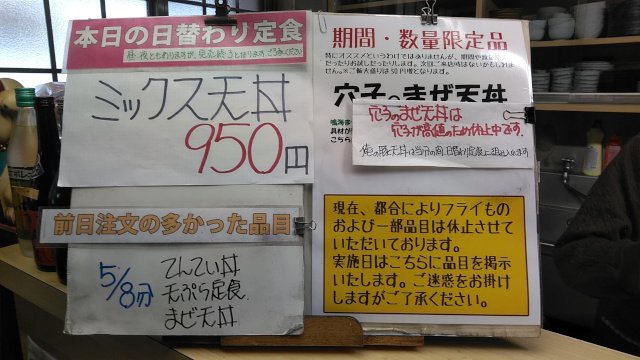 本日の日替わり定食
ミックス天丼
950円
前日注文の多かった品目
5/8分
てんてい丼
天ぷら定食
まぜ天丼
期間・数量限定品
特にオススメというわけではありませんが、期間や数
穴子のまぜ天丼
穴子のまぜ天丼は
穴子が高値のため休止中です。
現在、都合によりフライもの
および一部品目は休止させて
いただいております。
実施日はこちらに品目を掲示
いたします。ご迷惑をお掛け
しますがご了承ください。